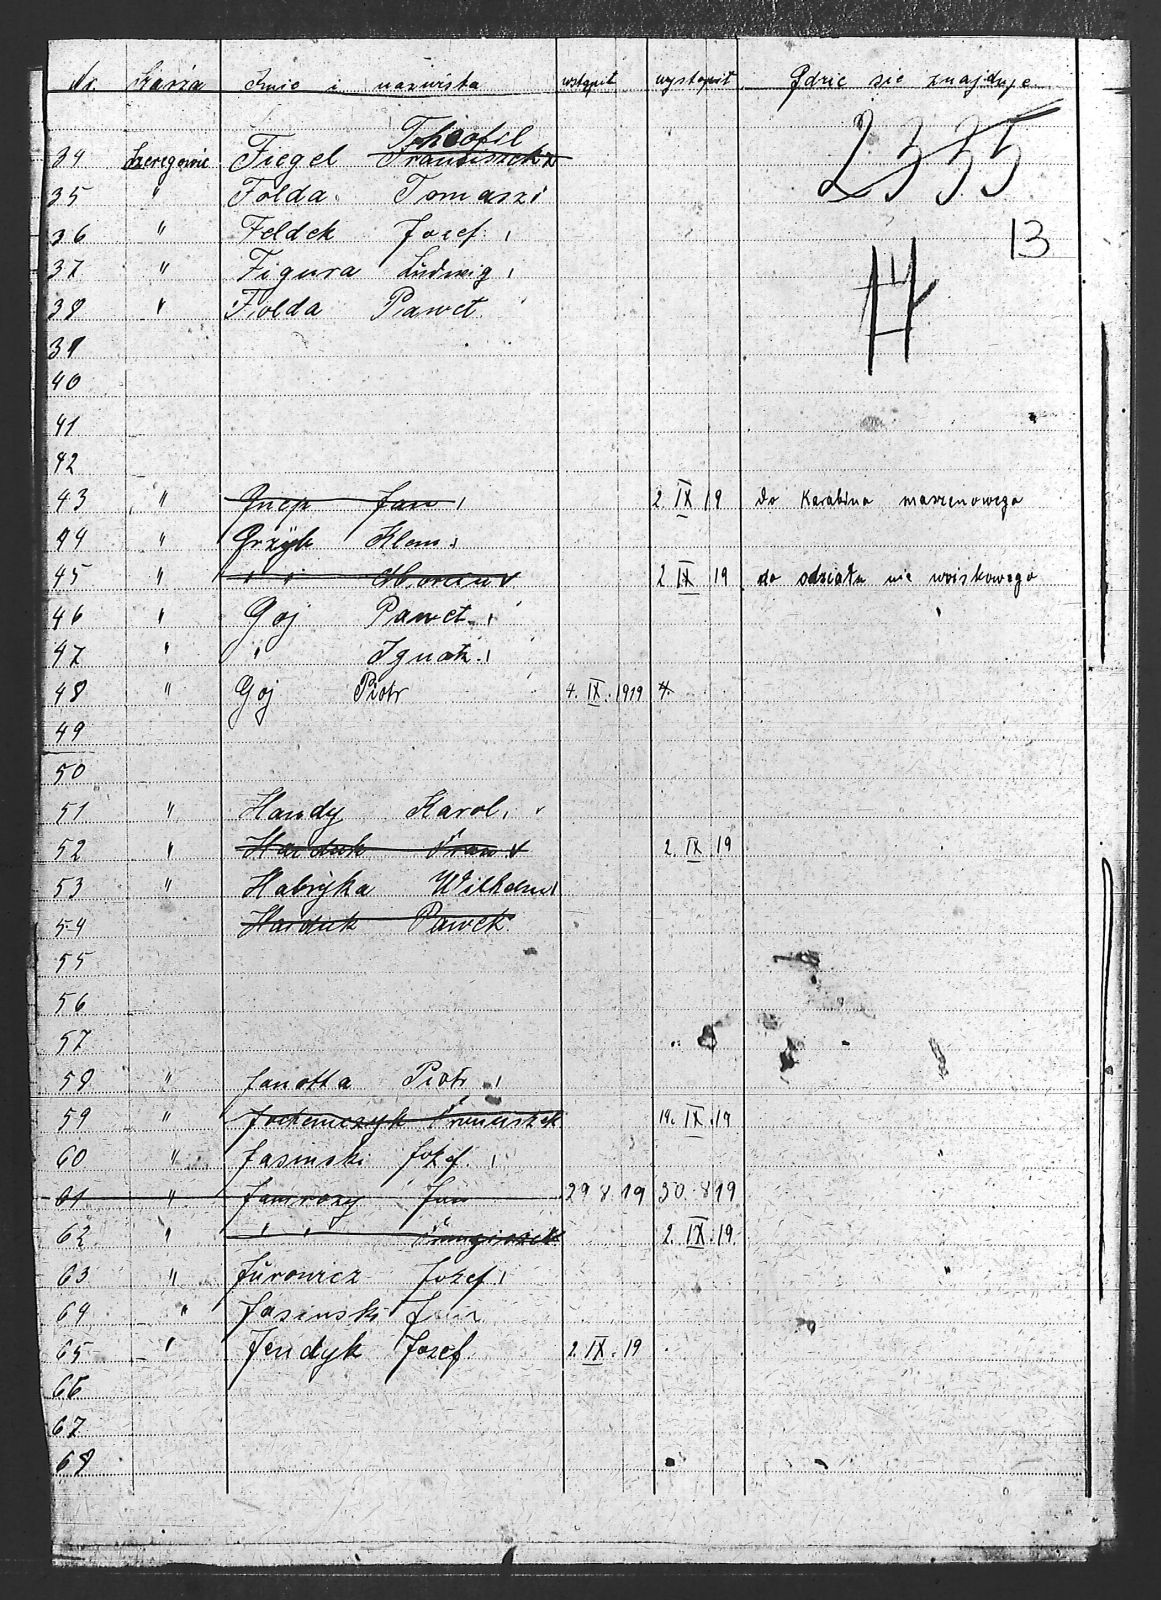 Nr. Szarża Imie i nazwiska wstąpił wystąpił Gdzie sie znajduje
Theofil
34 Szeregowiec Fiegel Franciszek
2335
35 " Folda Tomasz
36 " Feldek Jozef
13
37 " Figura Ludwig
H
38 " Folda Paweł
39
40
41
42
43 " Gnep Jan 2 IX 19 do Karabina maszenowego
44 " Grzÿb Klem.
45 " " " Marcin 2 IX 19 do odziału nie woiskowego
46 " Goj Paweł
47 " " Ignatz
48 " Goj Piotr 4. IX. 1919 4.
49
50
51 " Handy Karol
52 " Haiduk Fran 2. IX. 19
53 " Habrÿka Wilhelm
54 Haiduk Pawek
55
56
57
58 " Janotta Piotr
59 " Jochemczyk Franciszek 19. IX. 19
60 " Jasinski Jozef
61 " Jamrozy Jan 29 8 19 30. 8 19
62 " " " Frangiszek 2. IX. 19
63 " Jurowicz Jozef
64 " Jasinski J
65 " Jendyk Jozef 2. IX. 19
66
67
68